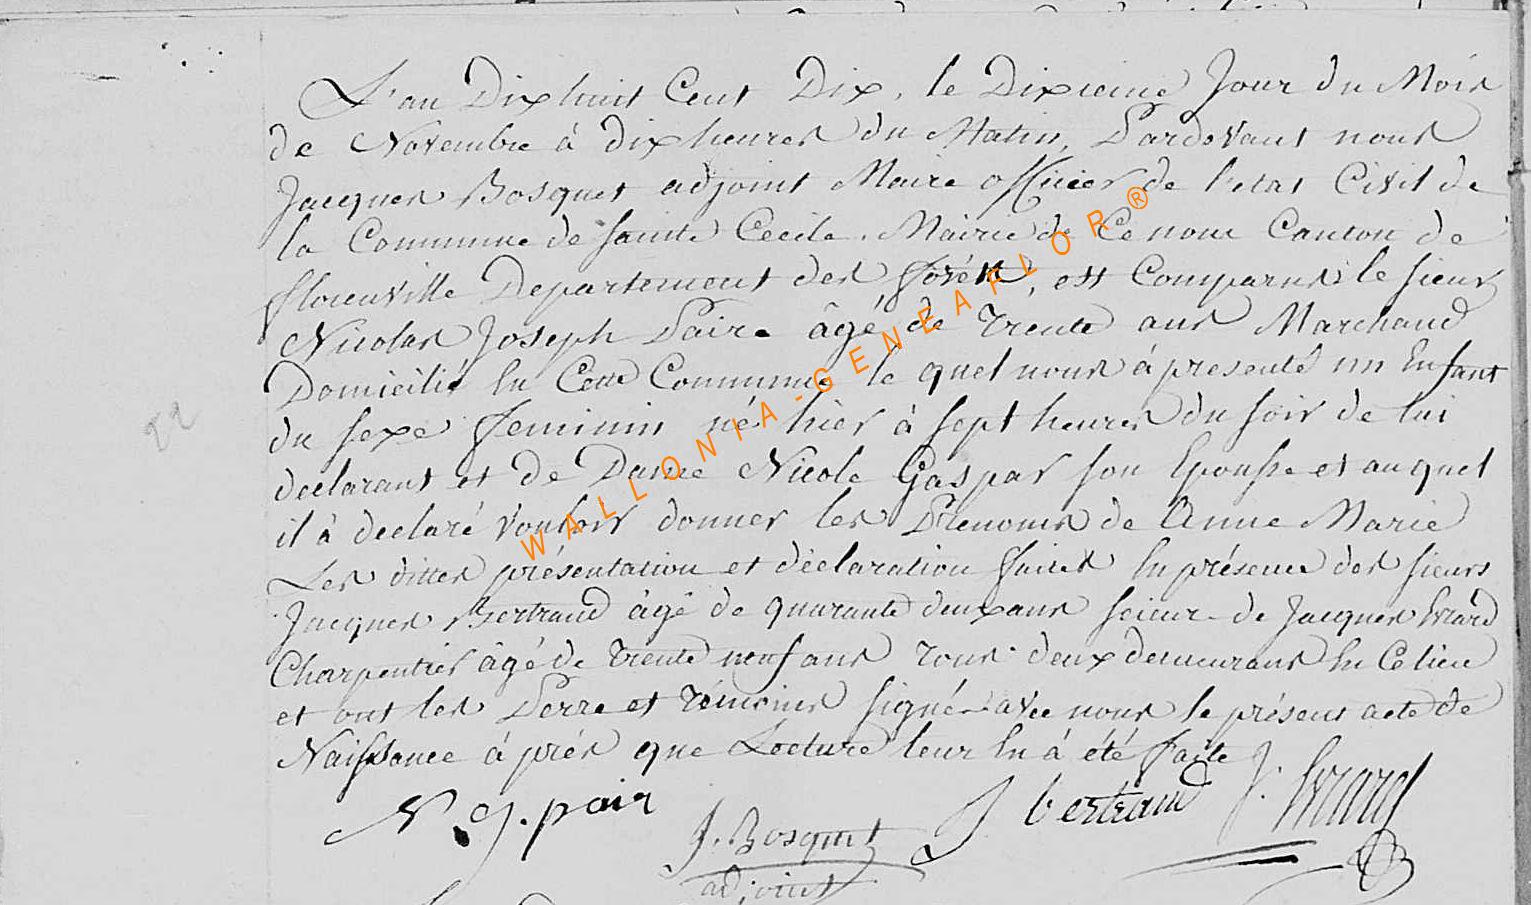 L'an Dixhuit Cent Dix, le Dixieme Jour du Mois
de Novembre à dix heures du Matin, Pardevant nous
Jacques Bosquet adjoint Maire officier de l'etat Civil de
la Commune de Sainte Cecile, Mairie de Ce nom Canton de
florenville Departement des forêts, est Comparu le sieur
Nicolas Joseph Paire âgé de trente ans Marchand
Domicilié En Cette Commune le quel nous à presenté un Enfant
du sexe feminin né hier à sept heures du soir de lui
declarant et de Dame Nicole Gaspar son Epousse et auquel
il à declaré vouloir donner les Prenoms de Anne Marie
Les dittes présentation et déclaration faites En présence des sieurs
Jacques Bertrand âgé de quarante deux ans scieur de Jacques Evrard
Charpentier âgé de trente neuf ans tous deux demeurans En Ce lieu
et ont les Perre et témoins signé avec nous le présent acte de
Naissance à près que Lecture leur En à été faite
N. J. pair J. Bosquet J bertrand J. Evrard
adjoint
22
WALLONIA-GENEAFLOR®